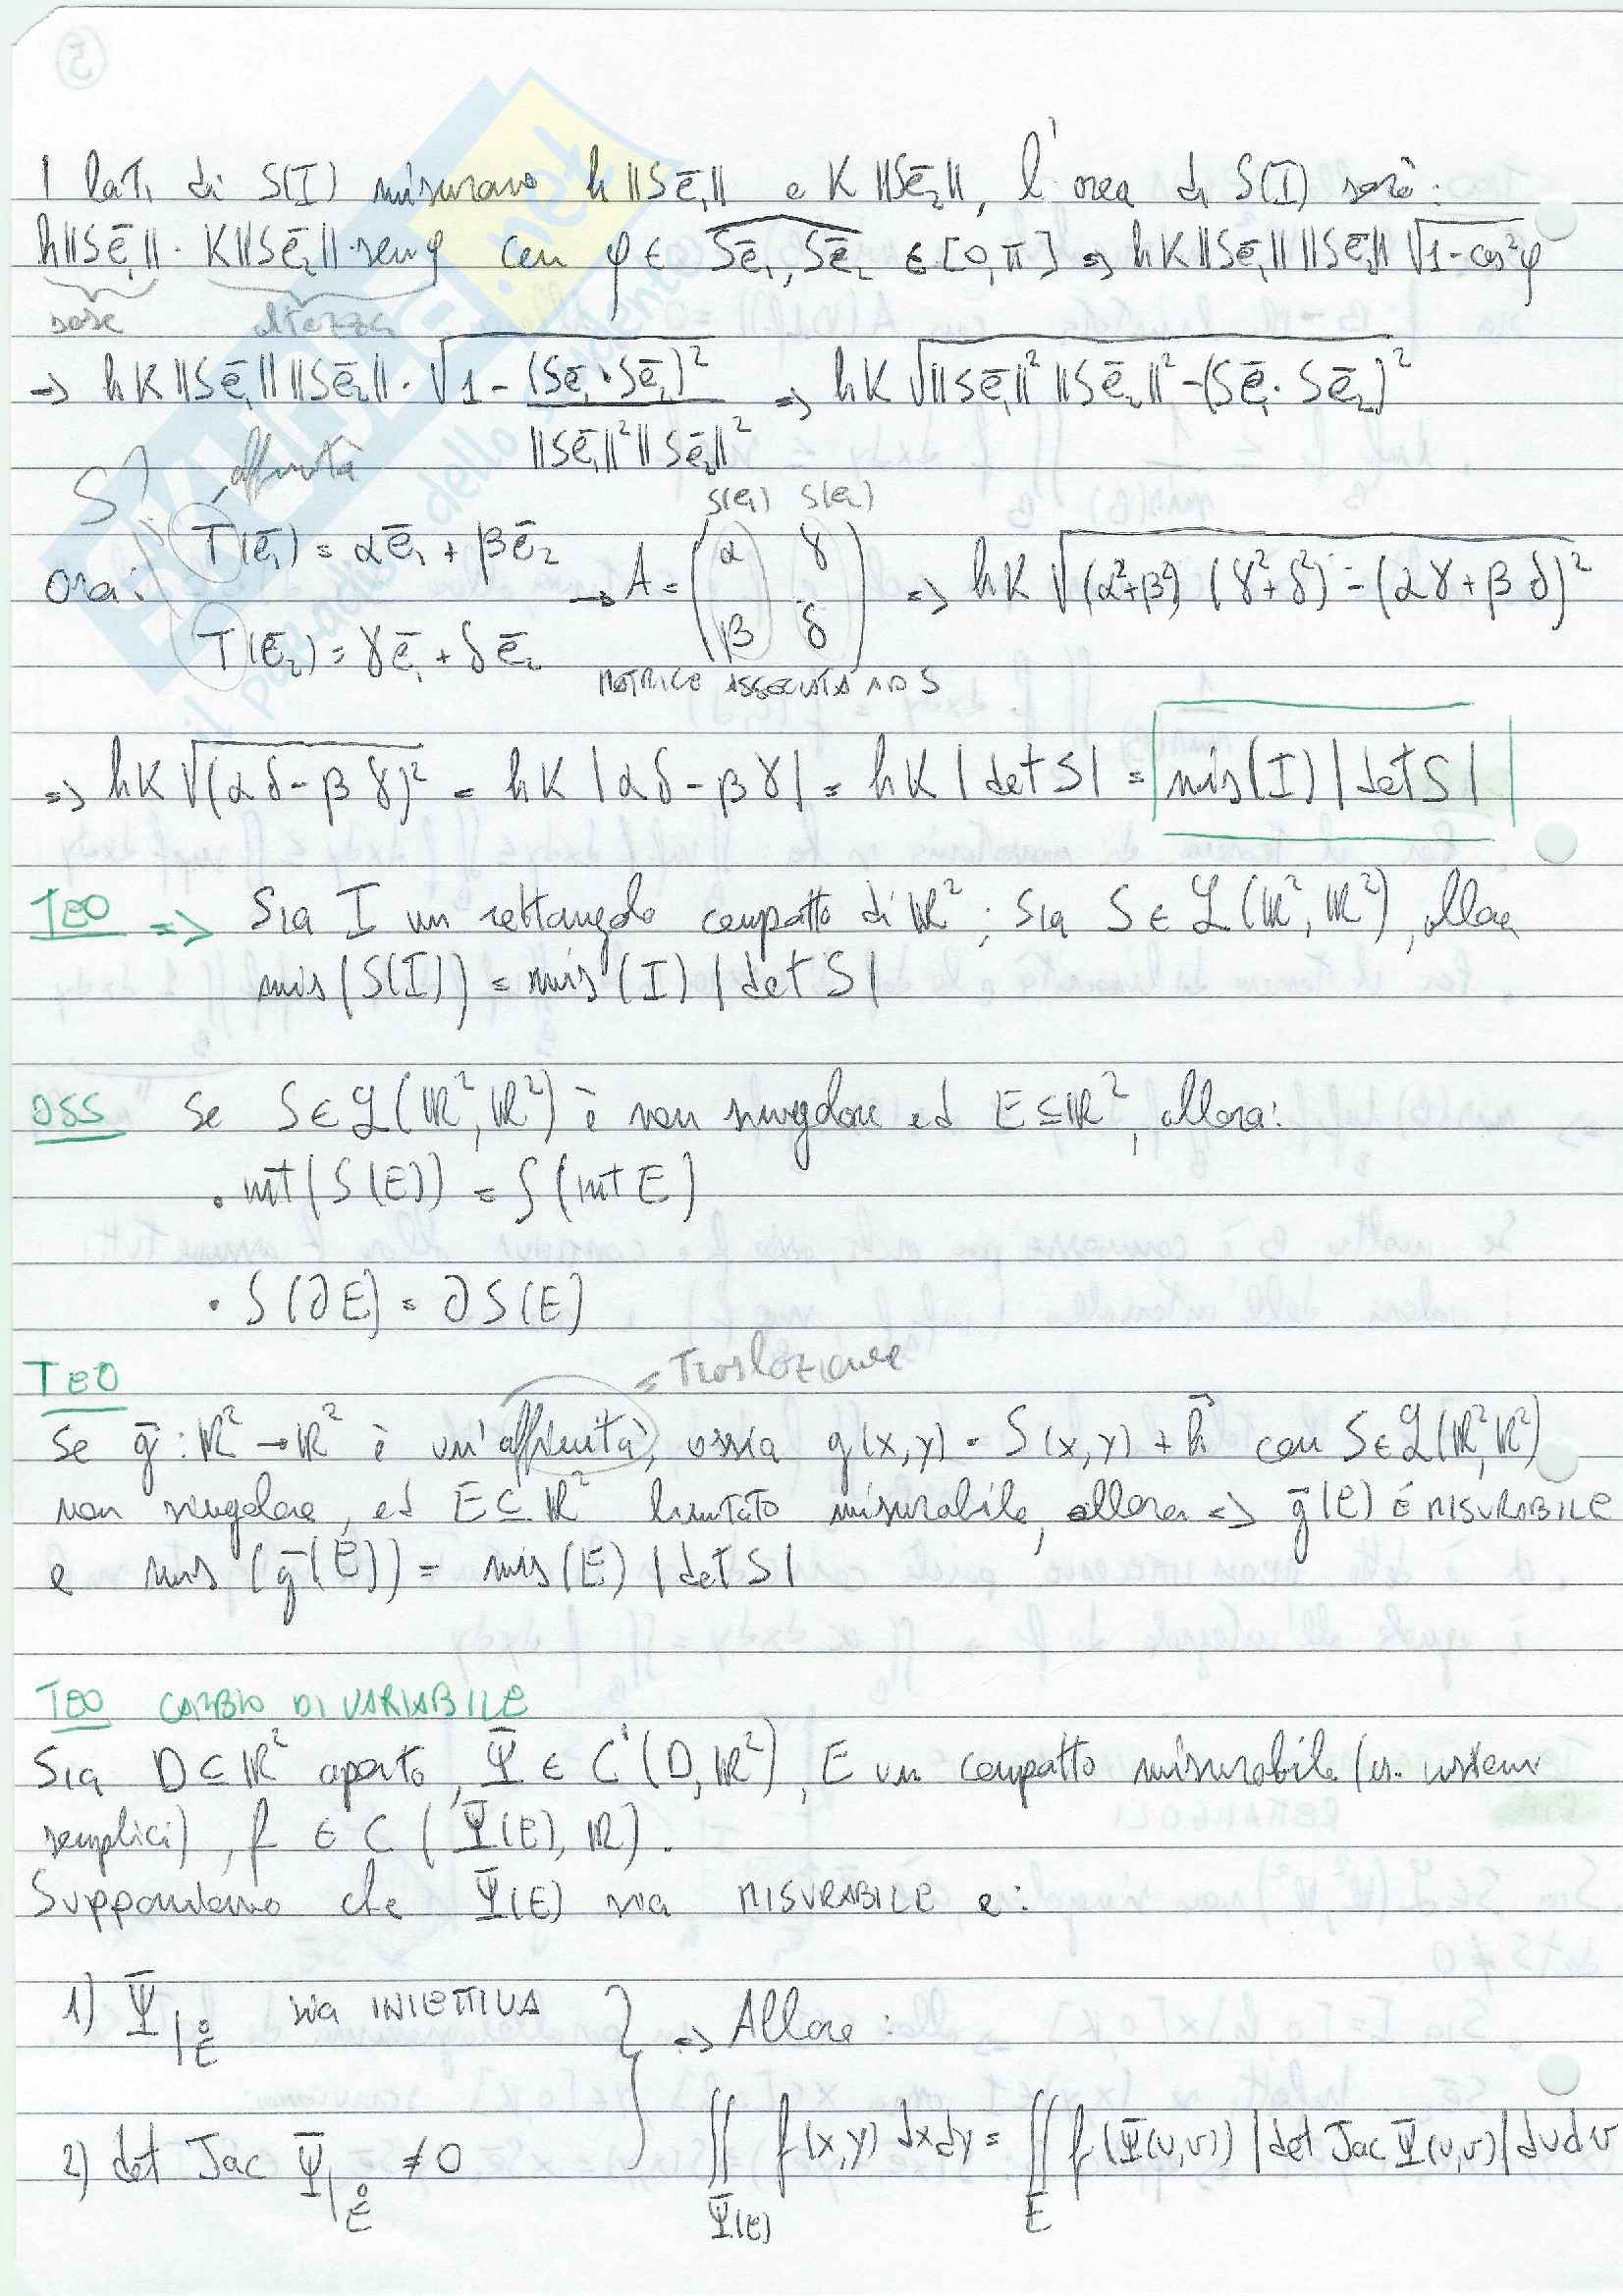 I lati di S(I) misurano h ||Sē₁|| e K ||Sē₂||, l'area di S(I) sarà:
h||Sē₁|| · K||Sē₂|| · sen φ con φ ∈ Sē₁, Sē₂ ∈ [0,π] => hK ||Sē₁|| ||Sē₂|| √(1-cos²φ)
base altezza
=> hK ||Sē₁|| ||Sē₂|| · √(1 - (Sē₁·Sē₂)² / ||Sē₁||² ||Sē₂||²) => hK √(||Sē₁||² ||Sē₂||² - (Sē₁· Sē₂)²)
S? affinità
S(e₁) S(e₂)
Ora: T(ē₁) = αē₁ + βē₂ → A = (α γ β δ) => hK √((α²+β²) (γ²+δ²) - (αγ + βδ)²)
T(ē₂) = γē₁ + δē₂
MATRICE ASSOCIATA AD S
=> hK √(αδ - βγ)² = hK |αδ - βγ| = hK |det S| = mis(I) |det S|
TEO => Sia I un rettangolo compatto di ℝ²; Sia S ∈ ℒ(ℝ², ℝ²), allora
mis(S(I)) = mis(I) |det S|
OSS Se S ∈ ℒ(ℝ², ℝ²) è non singolare ed E ⊆ ℝ², allora:
· int(S(E)) = S(int E)
· S(∂E) = ∂S(E)
TEO = Traslazione
Se ḡ : ℝ² → ℝ² è un'affinità, ossia g(x,y) = S(x,y) + h⃗ con S ∈ ℒ(ℝ², ℝ²)
non singolare, ed E ⊆ ℝ² limitato misurabile, allora => ḡ(E) È MISURABILE
e mis (ḡ(E)) = mis(E) |det S|
TEO CAMBIO DI VARIABILE
Sia D ⊆ ℝ² aperto, Ψ̄ ∈ C¹(D, ℝ²), E un compatto misurabile (es. insiemi
semplici), f ∈ C (Ψ̄(E), ℝ).
Supponiamo che Ψ̄(E) sia MISURABILE e:
1) Ψ̄|E̊ sia INIETTIVA } => Allora:
2) det Jac Ψ̄|E̊ ≠ 0 ∬ f(x,y) dxdy = ∬ f(Ψ̄(u,v)) |det Jac Ψ̄(u,v)| dudv
Ψ̄(E) E